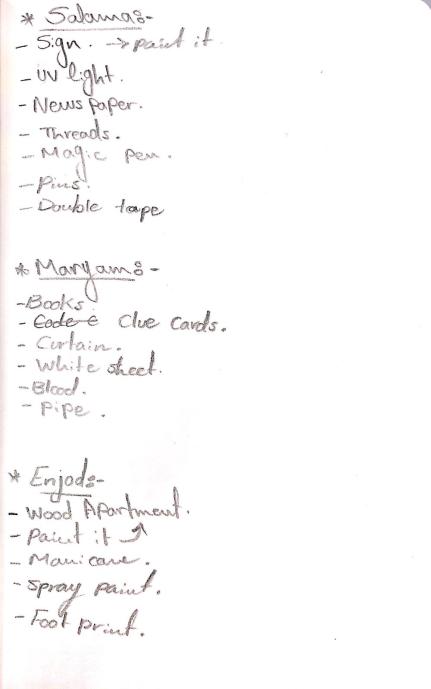 * Salama:-
- Sign. -> paint it
- UV light.
- News paper.
- Threads.
- Magic pen.
- Pins.
- Double tape
* Maryam:-
- Books.
- Code e Clue Cards.
- Curtain.
- White sheet.
- Blood.
- Pipe.
* Enjod:-
- Wood Apartment.
- Paint it ⤴
- Manicane.
- Spray paint.
- Foot print.